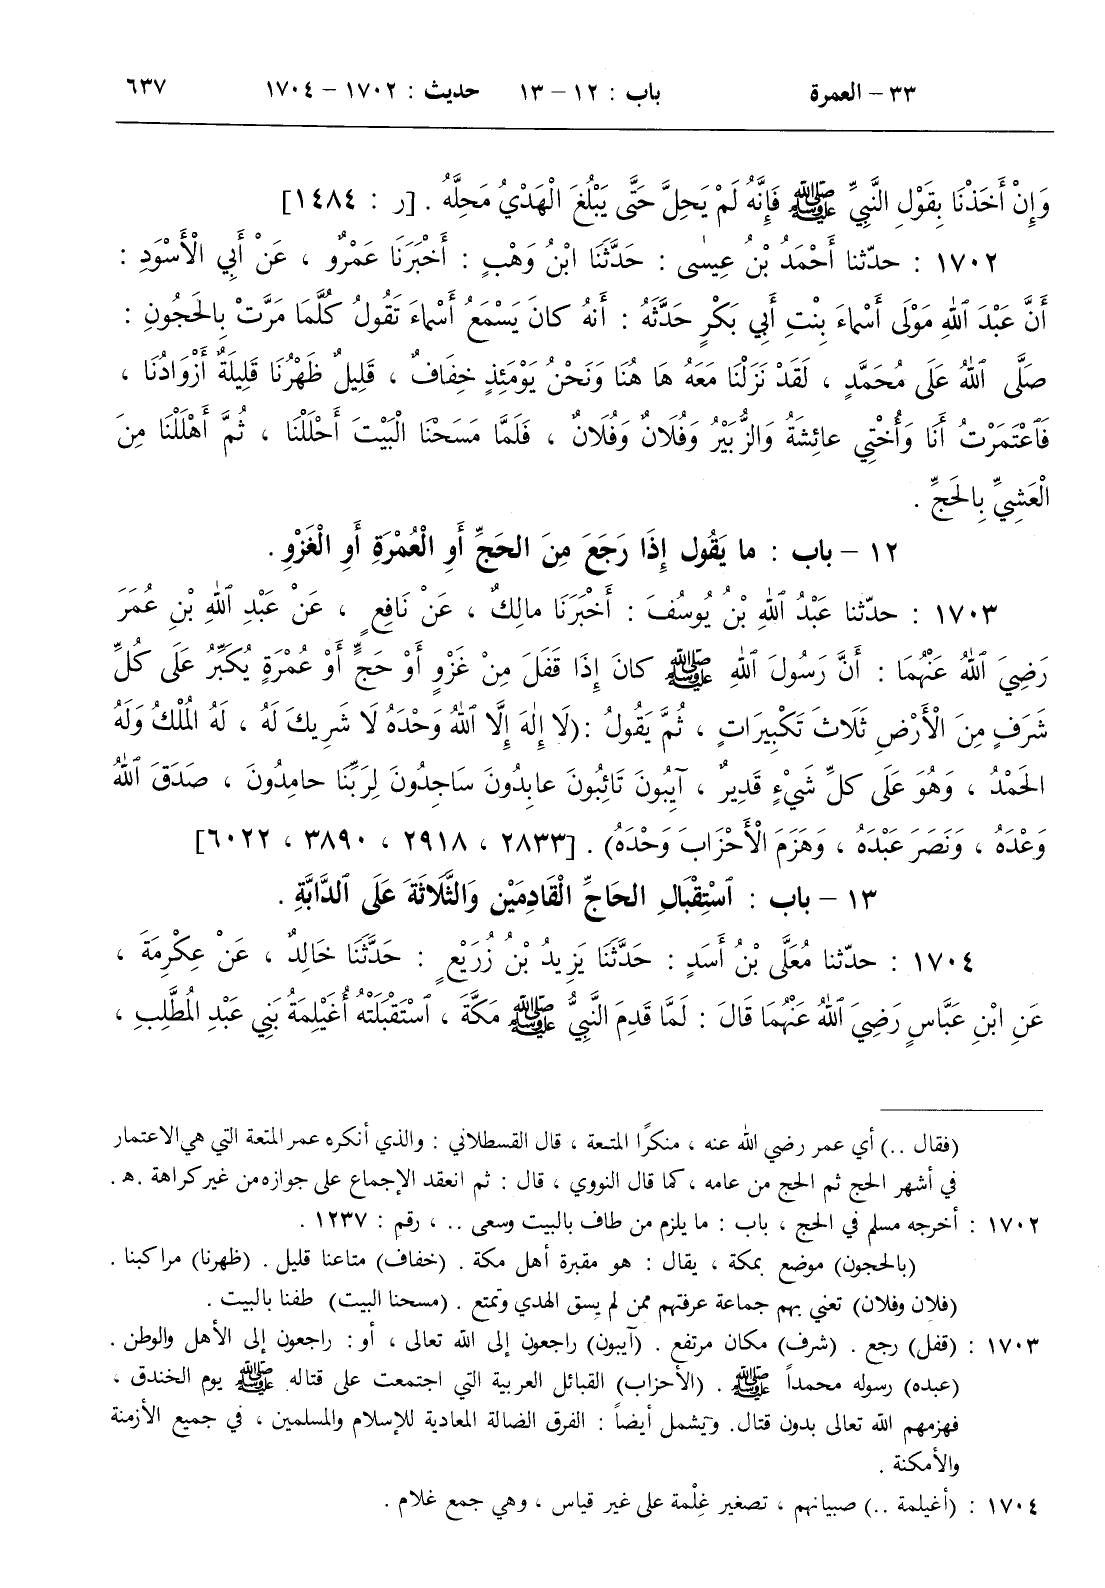 ٣٣ – العمرة باب : ١٢ – ١٣ حديث : ١٧٠٢ – ١٧٠٤ ٦٣٧
وَإِنْ أَخَذْنَا بِقَوْلِ النَّبِيِّ ﷺ فَإِنَّهُ لَمْ يَحِلَّ حَتَّى يَبْلُغَ الْهَدْيُ مَحِلَّهُ . [ر : ١٤٨٤]
١٧٠٢ : حدّثنا أَحْمَدُ بْنُ عِيسَى : حَدَّثَنَا ابْنُ وَهْبٍ : أَخْبَرَنَا عَمْرٌو ، عَنْ أَبِي الْأَسْوَدِ :
أَنَّ عَبْدَ ٱللهِ مَوْلَى أَسْمَاءَ بِنْتِ أَبِي بَكْرٍ حَدَّثَهُ : أَنَّهُ كانَ يَسْمَعُ أَسْمَاءَ تَقُولُ كُلَّمَا مَرَّتْ بِالْحَجُونِ :
صَلَّى ٱللهُ عَلَى مُحَمَّدٍ ، لَقَدْ نَزَلْنَا مَعَهُ هَا هُنَا وَنَحْنُ يَوْمَئِذٍ خِفَافٌ ، قَلِيلٌ ظَهْرُنَا قَلِيلَةٌ أَزْوَادُنَا ،
فَٱعْتَمَرْتُ أَنَا وَأُخْتِي عائِشَةُ وَالزُّبَيْرُ وَفُلَانٌ وَفُلَانٌ ، فَلَمَّا مَسَحْنَا الْبَيْتَ أَحْلَلْنَا ، ثُمَّ أَهْلَلْنَا مِنَ
الْعَشِيِّ بِالْحَجِّ .
١٢ – باب : ما يَقُول إِذَا رَجَعَ مِنَ الحَجِّ أَوِ الْعُمْرَةِ أَوِ الْغَزْوِ .
١٧٠٣ : حدّثنا عَبْدُ ٱللهِ بْنُ يُوسُفَ : أَخْبَرَنَا مالِكٌ ، عَنْ نَافِعٍ ، عَنْ عَبْدِ ٱللهِ بْنِ عُمَرَ
رَضِيَ ٱللهُ عَنْهُمَا : أَنَّ رَسُولَ ٱللهِ ﷺ كانَ إِذَا قَفَلَ مِنْ غَزْوٍ أَوْ حَجٍّ أَوْ عُمْرَةٍ يُكَبِّرُ عَلَى كُلِّ
شَرَفٍ مِنَ الْأَرْضِ ثَلَاثَ تَكْبِيرَاتٍ ، ثُمَّ يَقُولُ : (لَا إِلٰهَ إِلَّا ٱللهُ وَحْدَهُ لَا شَرِيكَ لَهُ ، لَهُ المُلْكُ وَلَهُ
الحَمْدُ ، وَهُوَ عَلَى كلِّ شَيْءٍ قَدِيرٌ ، آيِبُونَ تَائِبُونَ عابِدُونَ سَاجِدُونَ لِرَبِّنَا حامِدُونَ ، صَدَقَ ٱللهُ
وَعْدَهُ ، وَنَصَرَ عَبْدَهُ ، وَهَزَمَ الْأَحْزَابَ وَحْدَهُ) . [٢٨٣٣ ، ٢٩١٨ ، ٣٨٩٠ ، ٦٠٢٢]
١٣ – باب : ٱسْتِقْبَالِ الحَاجِّ الْقَادِمَيْنِ وَالثَّلَاثَةَ عَلَى ٱلدَّابَّةِ .
١٧٠٤ : حدّثنا مُعَلَّى بْنُ أَسَدٍ : حَدَّثَنَا يَزِيدُ بْنُ زُرَيْعٍ : حَدَّثَنَا خَالِدٌ ، عَنْ عِكْرِمَةَ ،
عَنِ ابْنِ عَبَّاسٍ رَضِيَ ٱللهُ عَنْهُمَا قَالَ : لَمَّا قَدِمَ النَّبِيُّ ﷺ مَكَّةَ ، ٱسْتَقْبَلَتْهُ أُغَيْلِمَةُ بَنِي عَبْدِ المُطَّلِبِ ،
(فقال ..) أي عمر رضي الله عنه ، منكرًا المتعة ، قال القسطلاني : والذي أنكره عمر المتعة التي هي الاعتمار
في أشهر الحج ثم الحج من عامه ، كما قال النووي ، قال : ثم انعقد الإجماع على جوازه من غير كراهة .هـ .
١٧٠٢ : أخرجه مسلم في الحج ، باب : ما يلزم من طاف بالبيت وسعى .. ، رقم : ١٢٣٧ .
(بالحجون) موضع بمكة ، يقال : هو مقبرة أهل مكة . (خفاف) متاعنا قليل . (ظهرنا) مراكبنا .
(فلان وفلان) تعني بهم جماعة عرفتهم ممن لم يسق الهدي وتمتع . (مسحنا البيت) طفنا بالبيت .
١٧٠٣ : (قفل) رجع . (شرف) مكان مرتفع . (آيبون) راجعون إلى الله تعالى ، أو : راجعون إلى الأهل والوطن .
(عبده) رسوله محمداً ﷺ . (الأحزاب) القبائل العربية التي اجتمعت على قتاله ﷺ يوم الخندق ،
فهزمهم الله تعالى بدون قتال. ويشمل أيضاً : الفرق الضالة المعادية للإسلام والمسلمين ، في جميع الأزمنة
والأمكنة .
١٧٠٤ : (أغيلمة ..) صبيانهم ، تصغير غِلْمة على غير قياس ، وهي جمع غلام .